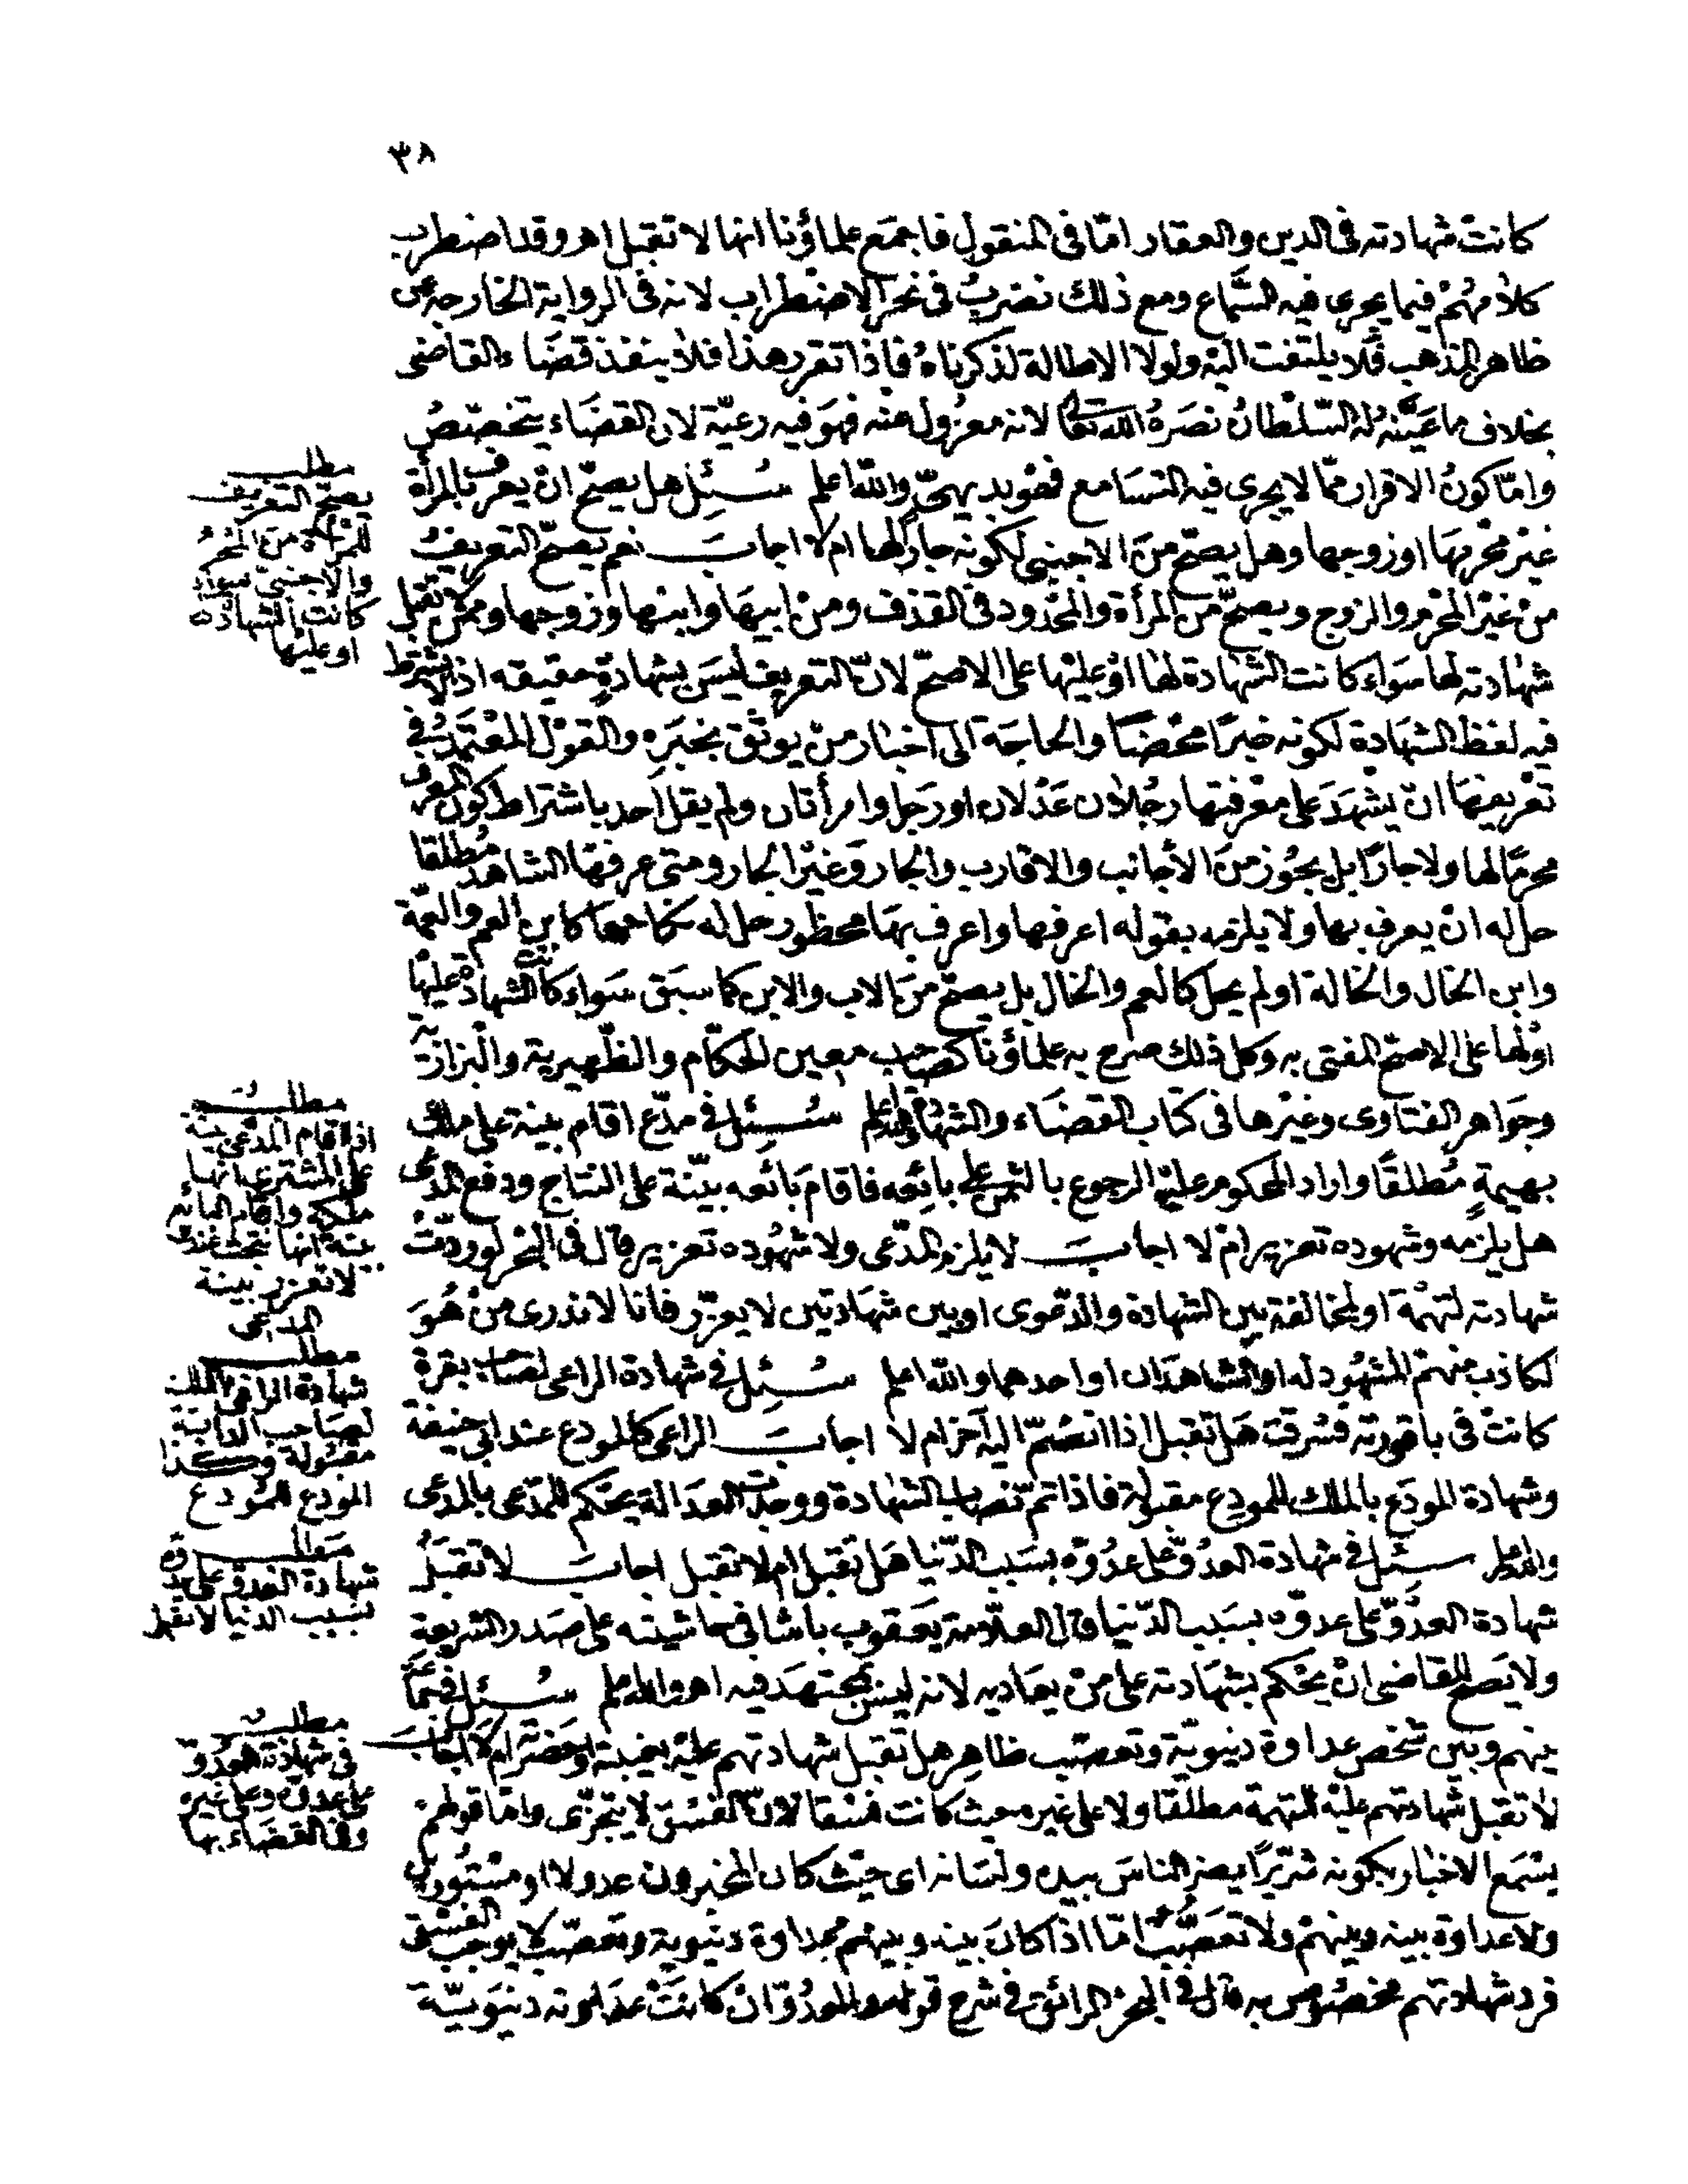 ٣٨
كانت شهادته في الدين والعقار امّا في المنقول فاجمَع علماؤنا انها لا تقبل اهـ وقد اضطرب
كلامهُمْ فيما يجرى فيه السَّماع ومع ذلك نضربُ في نحر الاضطراب لانه في الرواية الخارجة عن
ظاهر المذهب فَلا يلتفت اليْه ولولا الاطالة لذكرناهُ فاذا تقرر هذا فلا ينفذ قضَاء القاضى
بخلاف ما عَيَّنهُ له السّلطانُ نصَرهُ الله تعالى لانه معزُول عنه فهوَ فيه رعيّة لان القضَاء يتخصّصُ
وامّا كونُ الاقرار ممّا لا يجرى فيه التسَامع فهُو بديهىّ والله اعلم سُـئِل هل يصحّ انْ يعرف بالمرأة
غيْر محْرمهَا اوزوجها وهل يصحّ منَ الاجنبى لكونه جارًا لها ام لا اجابَ نعم يصحّ التعريفُ
منْ غيْر المحْرم والزوج ويصحّ من المرأة والمحْدود في القذف ومنْ ابيهَا وابنها وزوجها وممّن لا تقبل
شهادته لها سَواء كانت الشهادة لها اوْ عليْها على الاصحّ لانّ التعريف ليسَ بشهادةٍ حقيقه اذ لم يشترط
فيه لفظ الشهَادة لكونه خبرًا محْضًا والحاجَة الى اخبار منْ يوثق بخبَرِه والقوْل المعْتمَدُ في
تعْريفهَا انّ يشْهدَ على معْرفتها رجُلان عَدْلان اورَجل وامرأتان ولم يقل احد باشتراط كون المعرف
محرمًا لها ولا جارًا بل يجُوز منَ الأجانب والاقارب والجار وَغيْر الجار ومتى عرفهَا الشاهد مُطلقا
حل له انْ يعرف بها ولا يلزمه بقوله اعرفها واعرف بهَا محظور حل له نكاحهَا كابن العم والعمّة
وابن الخال والخالة اولم يحل كالعم والخال بل يصحّ منَ الاب والابن كما سبَق سَواء كانت الشهادة عليْها
اوْلها على الاصحّ المفتى به وكل ذلك صرح به علماؤنا كصَاحب معين الحكّام والظّهيرية والبْزازيّة
وجَواهر الفتاوى وغيْرها فى كتاب القضَاء والشهادة والله اعلم سُـئِل في مدّع اقام بينة على ملك
بهيمةٍ مُطلقًا واراد المحكوم عليْه الرجوع بالثمن على بائِعه فاقامَ بَائعه بيّنة على النتاج ودفع المدّعى
هل يلزمه وشهوده تعزير امْ لا اجابَ لا يلزم المدّعى ولا شهُوده تعزير قال فى البحْر لو ردّتْ
شهادته لتهْمة اولمخالفة بيْن الشهادة والدّعوى اوبين شهَادتين لا يعزّر فانا لا ندرى منْ هُوَ
لكاذب منهم المشهُود له او الشاهدَان او احدهما والله اعلم سُـئِل في شهادة الراعى لصَاحب بقرة
كانتْ فى باقورته فسُرقتَ هَل تقبل اذا انضمّ اليه آخر ام لا اجابَ الراعى كالمودع عند ابى حنيفة
وشهادة المودَع بالملك للمودِع مقبولة فاذا تمّ نصاب الشهادة ووجدت العدَالة يحكم للمدّعى بالمدعى
والله اعلم سـئِل في شهادة العدُوّ على عدُوّه بسَبب الدّنيا هَل تقبل ام لا تقبل اجابَ لا تقبَلُ
شهادة العدُوّ على عدوّه بسَبب الدّنيا قال العلّامة يَعقوب باشا فى حاشيته على صَدر الشريعة
ولا يَصح للقاضى انْ يحْكم بشهَادته على منْ يعَاديه لانه ليسَ بمجتهَد فيه اهـ والله اعلم سُـئِل فيمَنْ
بينهم وبيْن شخص عداوة دنيويّة وتعصّب ظاهِر هل تقبل شهادتهم عليْه بغيبة او حَضرة ام لا اجابَ
لا تقبل شهادتهم عليْه للتهمة مطلقا ولا على غيره حيث كانت فسْقا لانّ الفسْق لا يتجزّى وامّا قولهمْ
يسْمَع الاخبار بكونه شرّيرًا يضر الناسَ بيده ولسَانه اى حيْث كان المخبرون عدولا او مسْتورين
ولا عداوة بينه وبينهمْ ولا تعَصُّبَ امّا اذا كانَ بينه وبينهم عداوة دنيوية وتعصّب لا يوجب الفسْق
فرد شهادتهم مخصُوص به قال فى البحْر الرائق في شرح قوله والعدُوّ انْ كانَتْ عدَاوته دنيَويّة
مطلب
يصحّ التعريف
للمرأة منَ المحْرم
والاجنبىّ سواء
كانت الشهادة
اوعليْها
مطلب
اذا اقام المدّعى بينة
على المشترى انها
ملكه واقام البائع
بينة انها نتجت عنده
لا تعزر بينة
المدعى
مطلب
شهادة الراعى بالملك
لصَاحب الدابة
مقبُولة وكذا
المودع للمُودع
مطلب
شهادة العدو على عدوّه
بسَبب الدنيا لا تقبل
مطلب
في شهادة العدوّ
على عدوّه وعلى غيره
وفى القضَاء بها